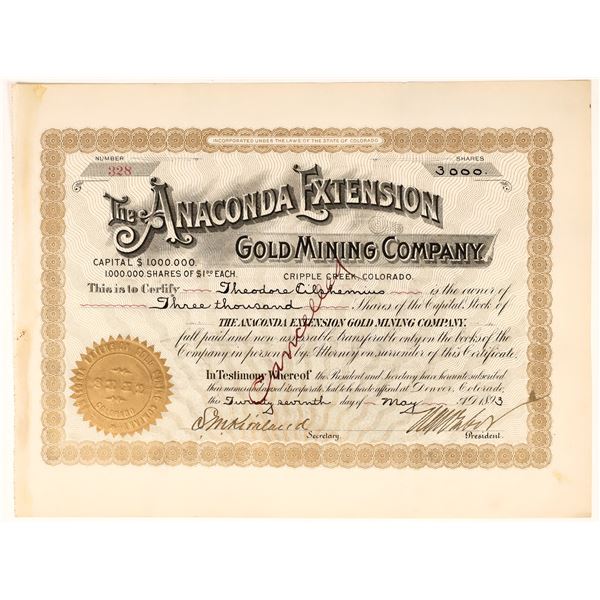 INCORPORATED UNDER THE LAWS OF THE STATE OF COLORADO
NUMBER SHARES
328 3000.
The ANACONDA EXTENSION
GOLD MINING COMPANY.
CAPITAL $1,000.000.
1,000.000. SHARES OF $1.00 EACH.
CRIPPLE CREEK, COLORADO.
This is to Certify Theodore Eilshemius is the owner of
Three thousand Shares of the Capital Stock of
THE ANACONDA EXTENSION GOLD MINING COMPANY.
full paid and non-assessable transferable only on the books of the
Company in person or by Attorney on surrender of this Certificate.
In Testimony Whereof the President and Secretary have hereunto subscribed
their names and caused its corporate Seal to be hereto affixed at Denver, Colorado,
this Twenty seventh day of May AD 1893
Secretary. President.
Cancelled
SEAL
COLORADO